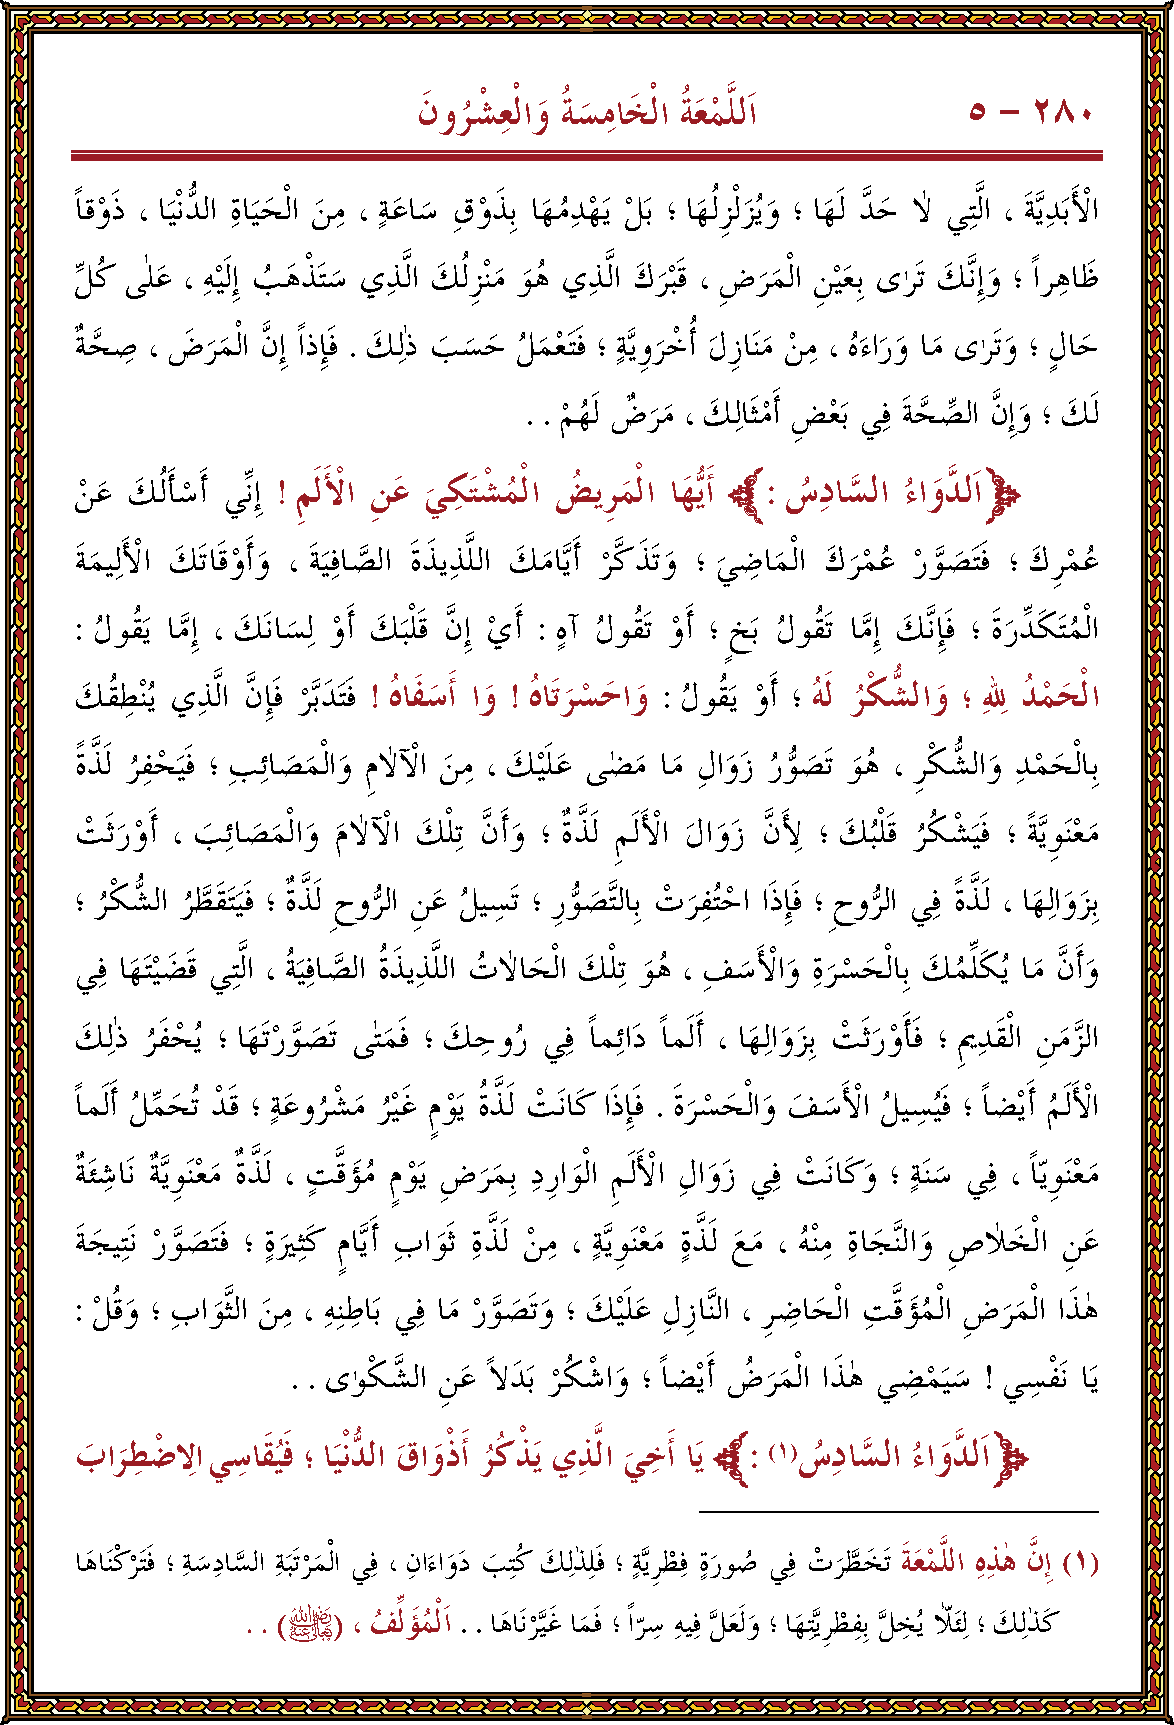 ٢٨٠ - ٥ اَللَّمْعَةُ الْخَامِسَةُ وَالْعِشْرُونَ
الْأَبَدِيَّةَ ، الَّتِي لَا حَدَّ لَهَا ؛ وَيُزَلْزِلُهَا ؛ بَلْ يَهْدِمُهَا بِذَوْقِ سَاعَةٍ ، مِنَ الْحَيَاةِ الدُّنْيَا ، ذَوْقاً
ظَاهِراً ؛ وَإِنَّكَ تَرٰى بِعَيْنِ الْمَرَضِ ، قَبْرَكَ الَّذِي هُوَ مَنْزِلُكَ الَّذِي سَتَذْهَبُ إِلَيْهِ ، عَلٰى كُلِّ
حَالٍ ؛ وَتَرٰى مَا وَرَاءَهُ ، مِنْ مَنَازِلَ أُخْرَوِيَّةٍ ؛ فَتَعْمَلُ حَسَبَ ذٰلِكَ . فَإِذاً إِنَّ الْمَرَضَ ، صِحَّةٌ
لَكَ ؛ وَإِنَّ الصِّحَّةَ فِي بَعْضِ أَمْثَالِكَ ، مَرَضٌ لَهُمْ . .
﴿اَلدَّوَاءُ السَّادِسُ : ﴾ أَيُّهَا الْمَرِيضُ الْمُشْتَكِيَ عَنِ الْأَلَمِ ! إِنِّي أَسْأَلُكَ عَنْ
عُمْرِكَ ؛ فَتَصَوَّرْ عُمْرَكَ الْمَاضِيَ ؛ وَتَذَكَّرْ أَيَّامَكَ اللَّذِيذَةَ الصَّافِيَةَ ، وَأَوْقَاتَكَ الْأَلِيمَةَ
الْمُتَكَدِّرَةَ ؛ فَإِنَّكَ إِمَّا تَقُولُ بَخٍ ؛ أَوْ تَقُولُ آهٍ : أَيْ إِنَّ قَلْبَكَ أَوْ لِسَانَكَ ، إِمَّا يَقُولُ :
الْحَمْدُ لِلّٰهِ ؛ وَالشُّكْرُ لَهُ ؛ أَوْ يَقُولُ : وَاحَسْرَتَاهُ ! وَا أَسَفَاهُ ! فَتَدَبَّرْ فَإِنَّ الَّذِي يُنْطِقُكَ
بِالْحَمْدِ وَالشُّكْرِ ، هُوَ تَصَوُّرُ زَوَالِ مَا مَضٰى عَلَيْكَ ، مِنَ الْآلَامِ وَالْمَصَائِبِ ؛ فَيَحْفِرُ لَذَّةً
مَعْنَوِيَّةً ؛ فَيَشْكُرُ قَلْبُكَ ؛ لِأَنَّ زَوَالَ الْأَلَمِ لَذَّةٌ ؛ وَأَنَّ تِلْكَ الْآلَامَ وَالْمَصَائِبَ ، أَوْرَثَتْ
بِزَوَالِهَا ، لَذَّةً فِي الرُّوحِ ؛ فَإِذَا احْتُفِرَتْ بِالتَّصَوُّرِ ؛ تَسِيلُ عَنِ الرُّوحِ لَذَّةٌ ؛ فَيَتَقَطَّرُ الشُّكْرُ ؛
وَأَنَّ مَا يُكَلِّمُكَ بِالْحَسْرَةِ وَالْأَسَفِ ، هُوَ تِلْكَ الْحَالَاتُ اللَّذِيذَةُ الصَّافِيَةُ ، الَّتِي قَضَيْتَهَا فِي
الزَّمَنِ الْقَدِيمِ ؛ فَأَوْرَثَتْ بِزَوَالِهَا ، أَلَماً دَائِماً فِي رُوحِكَ ؛ فَمَتٰى تَصَوَّرْتَهَا ؛ يُحْفَرُ ذٰلِكَ
الْأَلَمُ أَيْضاً ؛ فَيُسِيلُ الْأَسَفَ وَالْحَسْرَةَ . فَإِذَا كَانَتْ لَذَّةُ يَوْمٍ غَيْرُ مَشْرُوعَةٍ ؛ قَدْ تُحَمِّلُ أَلَماً
مَعْنَوِيّاً ، فِي سَنَةٍ ؛ وَكَانَتْ فِي زَوَالِ الْأَلَمِ الْوَارِدِ بِمَرَضِ يَوْمٍ مُؤَقَّتٍ ، لَذَّةٌ مَعْنَوِيَّةٌ نَاشِئَةٌ
عَنِ الْخَلَاصِ وَالنَّجَاةِ مِنْهُ ، مَعَ لَذَّةٍ مَعْنَوِيَّةٍ ، مِنْ لَذَّةِ ثَوَابِ أَيَّامٍ كَثِيرَةٍ ؛ فَتَصَوَّرْ نَتِيجَةَ
هٰذَا الْمَرَضِ الْمُؤَقَّتِ الْحَاضِرِ ، النَّازِلِ عَلَيْكَ ؛ وَتَصَوَّرْ مَا فِي بَاطِنِهِ ، مِنَ الثَّوَابِ ؛ وَقُلْ :
يَا نَفْسِي ! سَيَمْضِي هٰذَا الْمَرَضُ أَيْضاً ؛ وَاشْكُرْ بَدَلاً عَنِ الشَّكْوٰى . .
﴿اَلدَّوَاءُ السَّادِسُ(١) : ﴾ يَا أَخِيَ الَّذِي يَذْكُرُ أَذْوَاقَ الدُّنْيَا ؛ فَيُقَاسِي الِاضْطِرَابَ
(١) إِنَّ هٰذِهِ اللَّمْعَةَ تَخَطَّرَتْ فِي صُورَةٍ فِطْرِيَّةٍ ؛ فَلِذٰلِكَ كُتِبَ دَوَاءَانِ ، فِي الْمَرْتَبَةِ السَّادِسَةِ ؛ فَتَرَكْنَاهَا
كَذٰلِكَ ؛ لِئَلَّا يُخِلَّ بِفِطْرِيَّتِهَا ؛ وَلَعَلَّ فِيهِ سِرّاً ؛ فَمَا غَيَّرْنَاهَا . . اَلْمُؤَلِّفُ ، (رَضِيَ اللهُ تَعَالَى عَنْهُ) . .